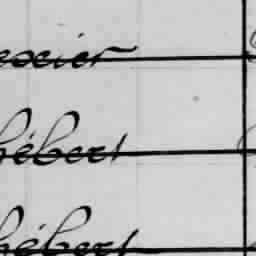 exier
hébert
hébert